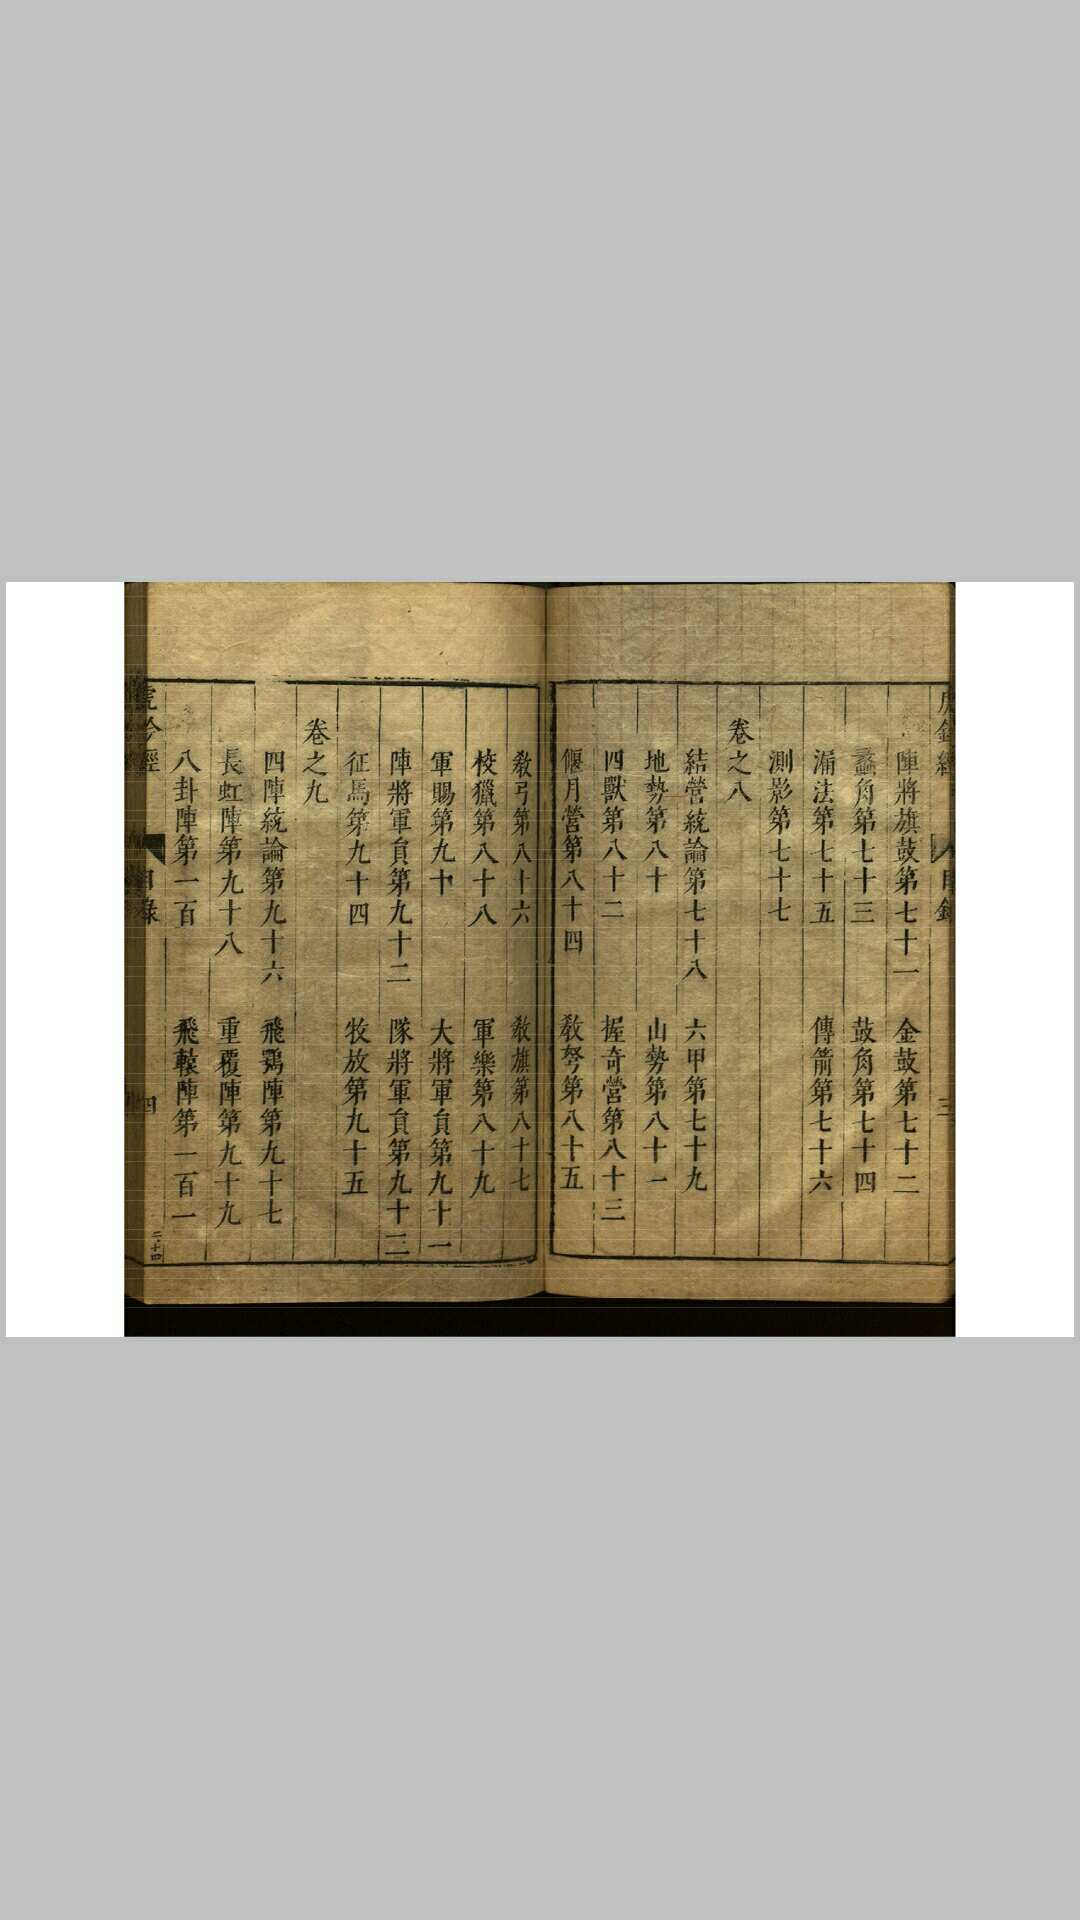 陣將旗鼓第七十一　金鼓第七十二
蠡角第七十三　鼓角第七十四
漏法第七十五　傳箭第七十六
測影第七十七
卷之八
結營統論第七十八　六甲第七十九
地勢第八十　山勢第八十一
四獸第八十二　握奇營第八十三
偃月營第八十四　敎弩第八十五
敎弓第八十六　敎旗第八十七
校獵第八十八　軍樂第八十九
軍賜第九十　大將軍員第九十一
陣將軍員第九十二　隊將軍員第九十三
征馬第九十四　牧放第九十五
卷之九
四陣統論第九十六　飛鶚陣第九十七
長虹陣第九十八　重覆陣第九十九
八卦陣第一百　飛轅陣第一百一
虎鈐經　目錄　四